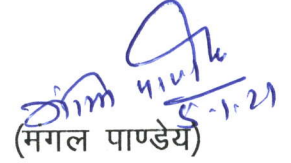 5.1.21
(मगल पाण्डेय)